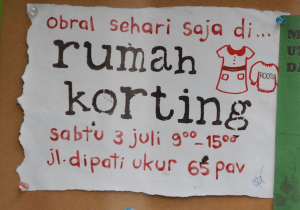 obral sehari saja di...
rumah
korting
sabtu 3 juli 9⁰⁰-15⁰⁰
jl. dipati ukur 65 pav